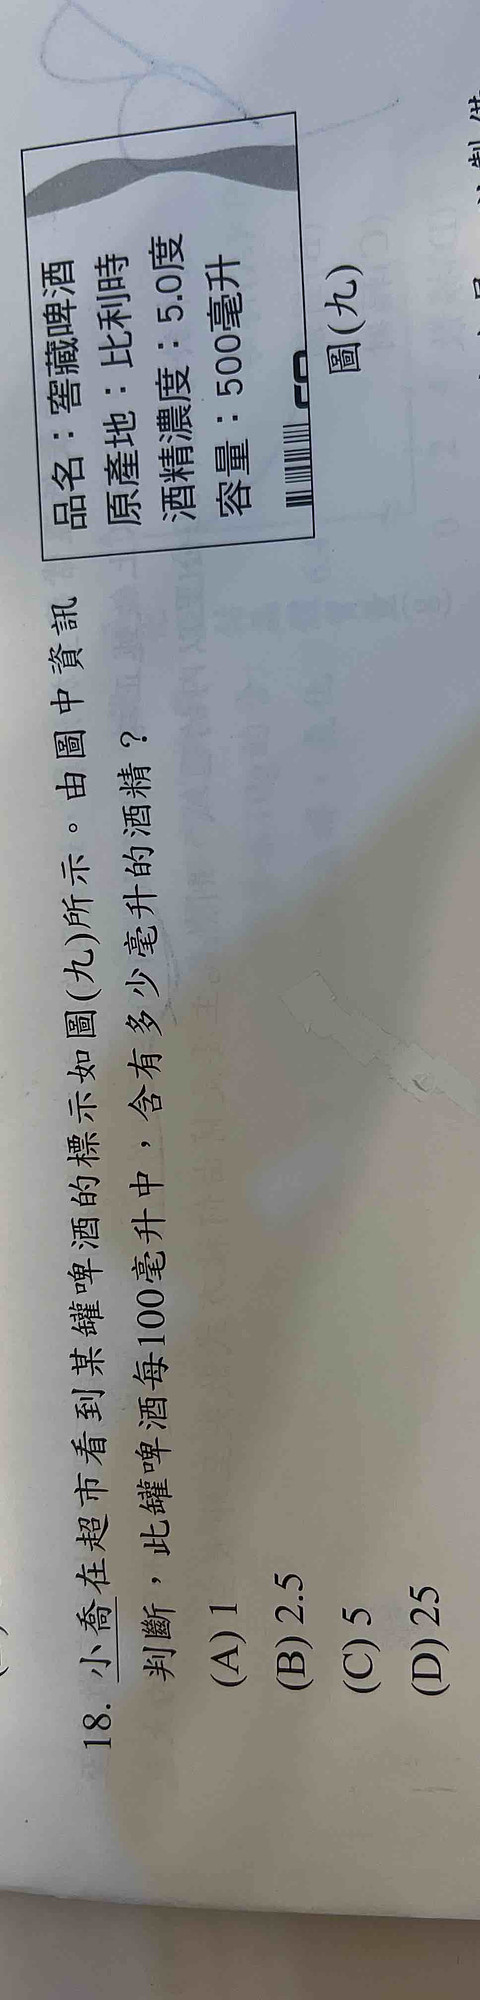 18. 小喬在超市看到某罐啤酒的標示如圖(九)所示。由圖中資訊
判斷，此罐啤酒每100毫升中，含有多少毫升的酒精？
(A) 1
(B) 2.5
(C) 5
(D) 25
品名：窖藏啤酒
原產地：比利時
酒精濃度：5.0度
容量：500毫升
圖(九)